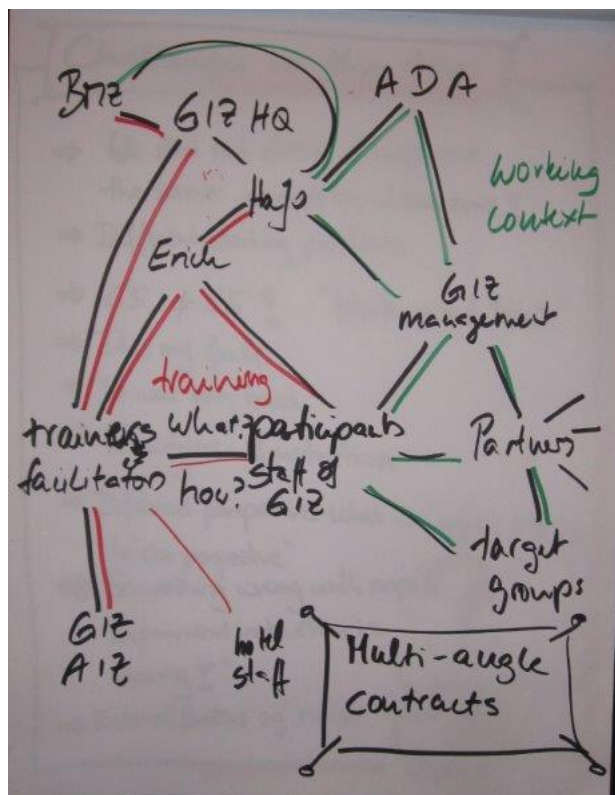 BMZ
GIZ HQ
ADA
Hajo
working
context
Erich
GIZ
management
training
trainers
facilitators
what?
how?
participants
staff of
GIZ
Partners
target
groups
GIZ
AIZ
hotel
staff
Multi-angle
contracts